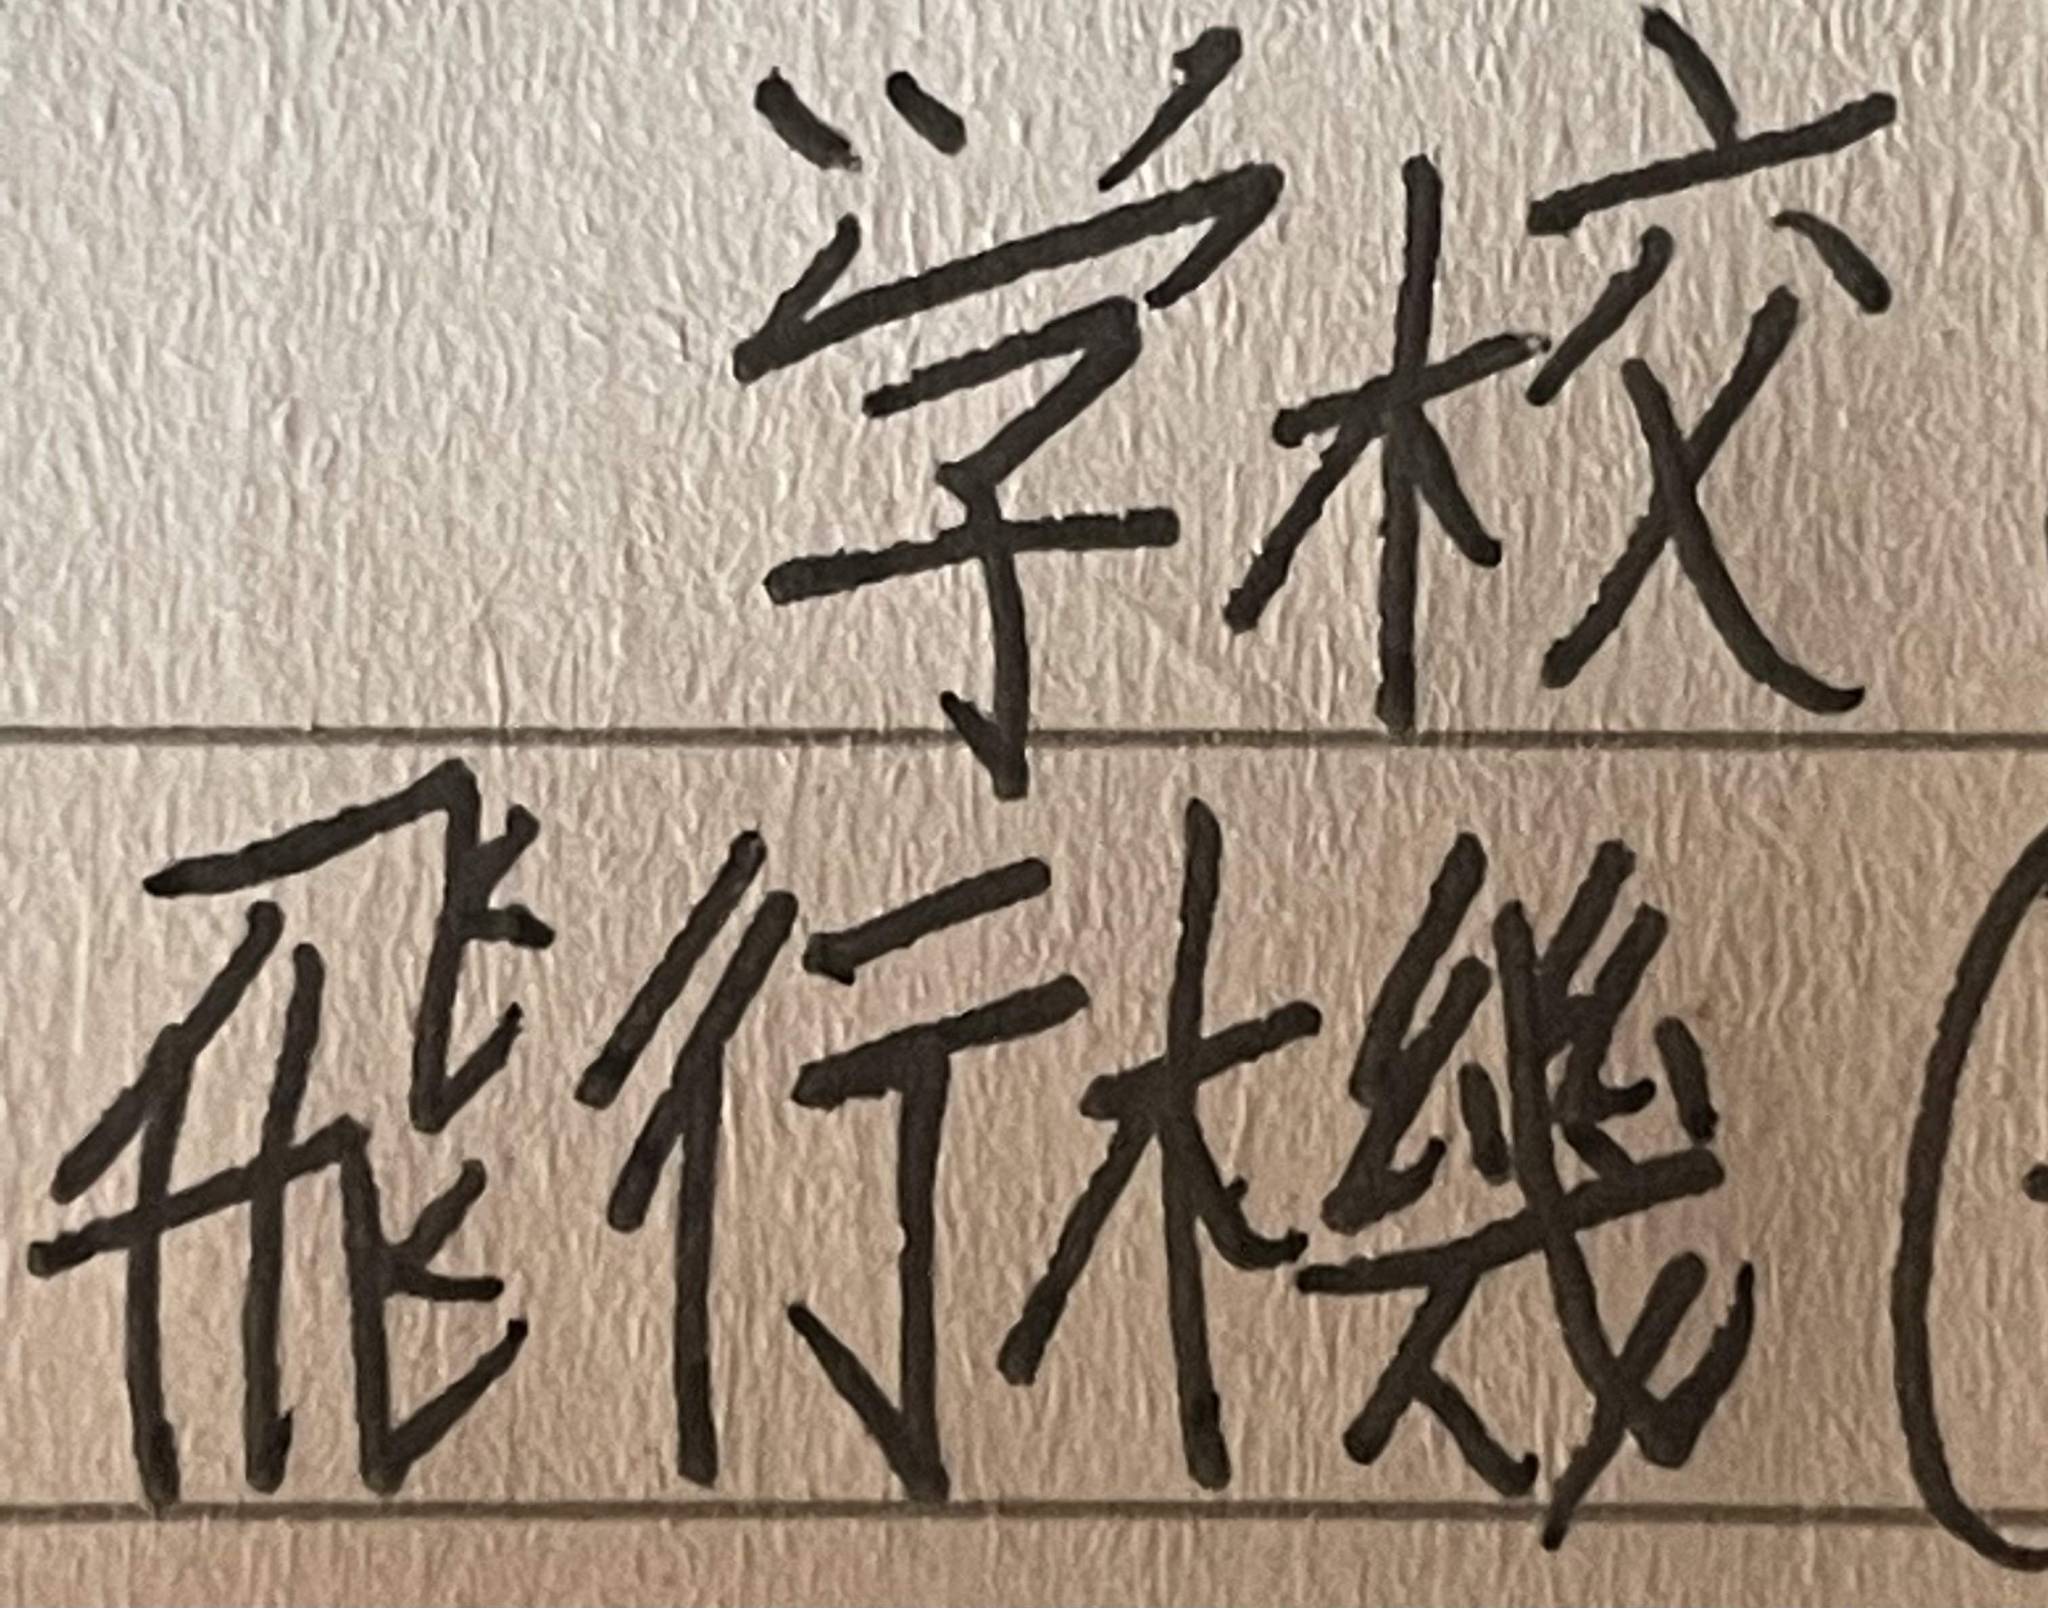 学校
飛行機(